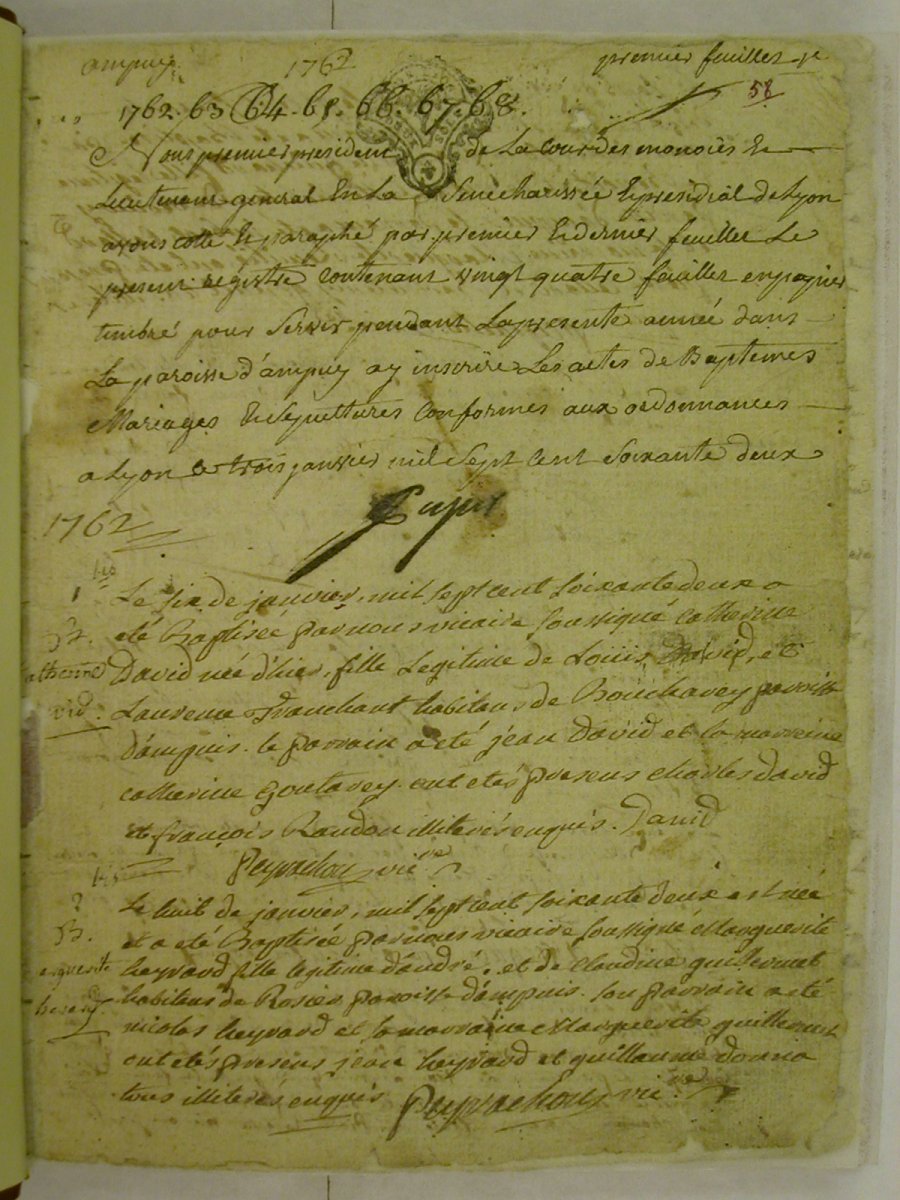 ampuy 1762 premier feuillet
58
1762. 63 64. 65. 66. 67 68.
Nous premier president de La Cour des monoies Et
Lieutenant general En La Senechaussée Et presidial de Lyon
avons cotté Et paraphé par premier Et dernier feuillet Le
present registre Contenant vingt quatre feuillet en papier
timbré pour Servir pendant La presente année dans
La paroisse d'ampuy a y inscrire Les actes de Baptemes
Mariages Et Sepultures Conformes aux ordonnances
a Lyon ce trois janvier mil Sept Cent Soixante deux
Pupil
1762
1
Le six de janvier, mil sept cent soixante deux a
été Baptisée par nous vicaire soussigné catherine
David née d'hier, fille Legitime de Louis David, et
Laurence Franchant habitans de Bouchavey paroisse
D'ampuis. le parrain a eté jean David et la marreine
catherine Goutarey. ont etés presens charles David
et françois Raudon illiterés enquis. David
B.
atherine
vid.
Peyrachon vic.re
2
Le huit de janvier, mil sept cent soixante deux est née
et a eté Baptisée par nous vicaire soussigné Marguerite
heyrard fille legitime d'andré, et de Claudine guillermet
habitans de Rosier paroisse d'ampuis. son parrain a eté
nicolas heyrard et la marraine Marguerite guillermet
ont etés presens jean heyrard et guillaume
tous illiterés enquis Peyrachon vic.re
B.
arguerite